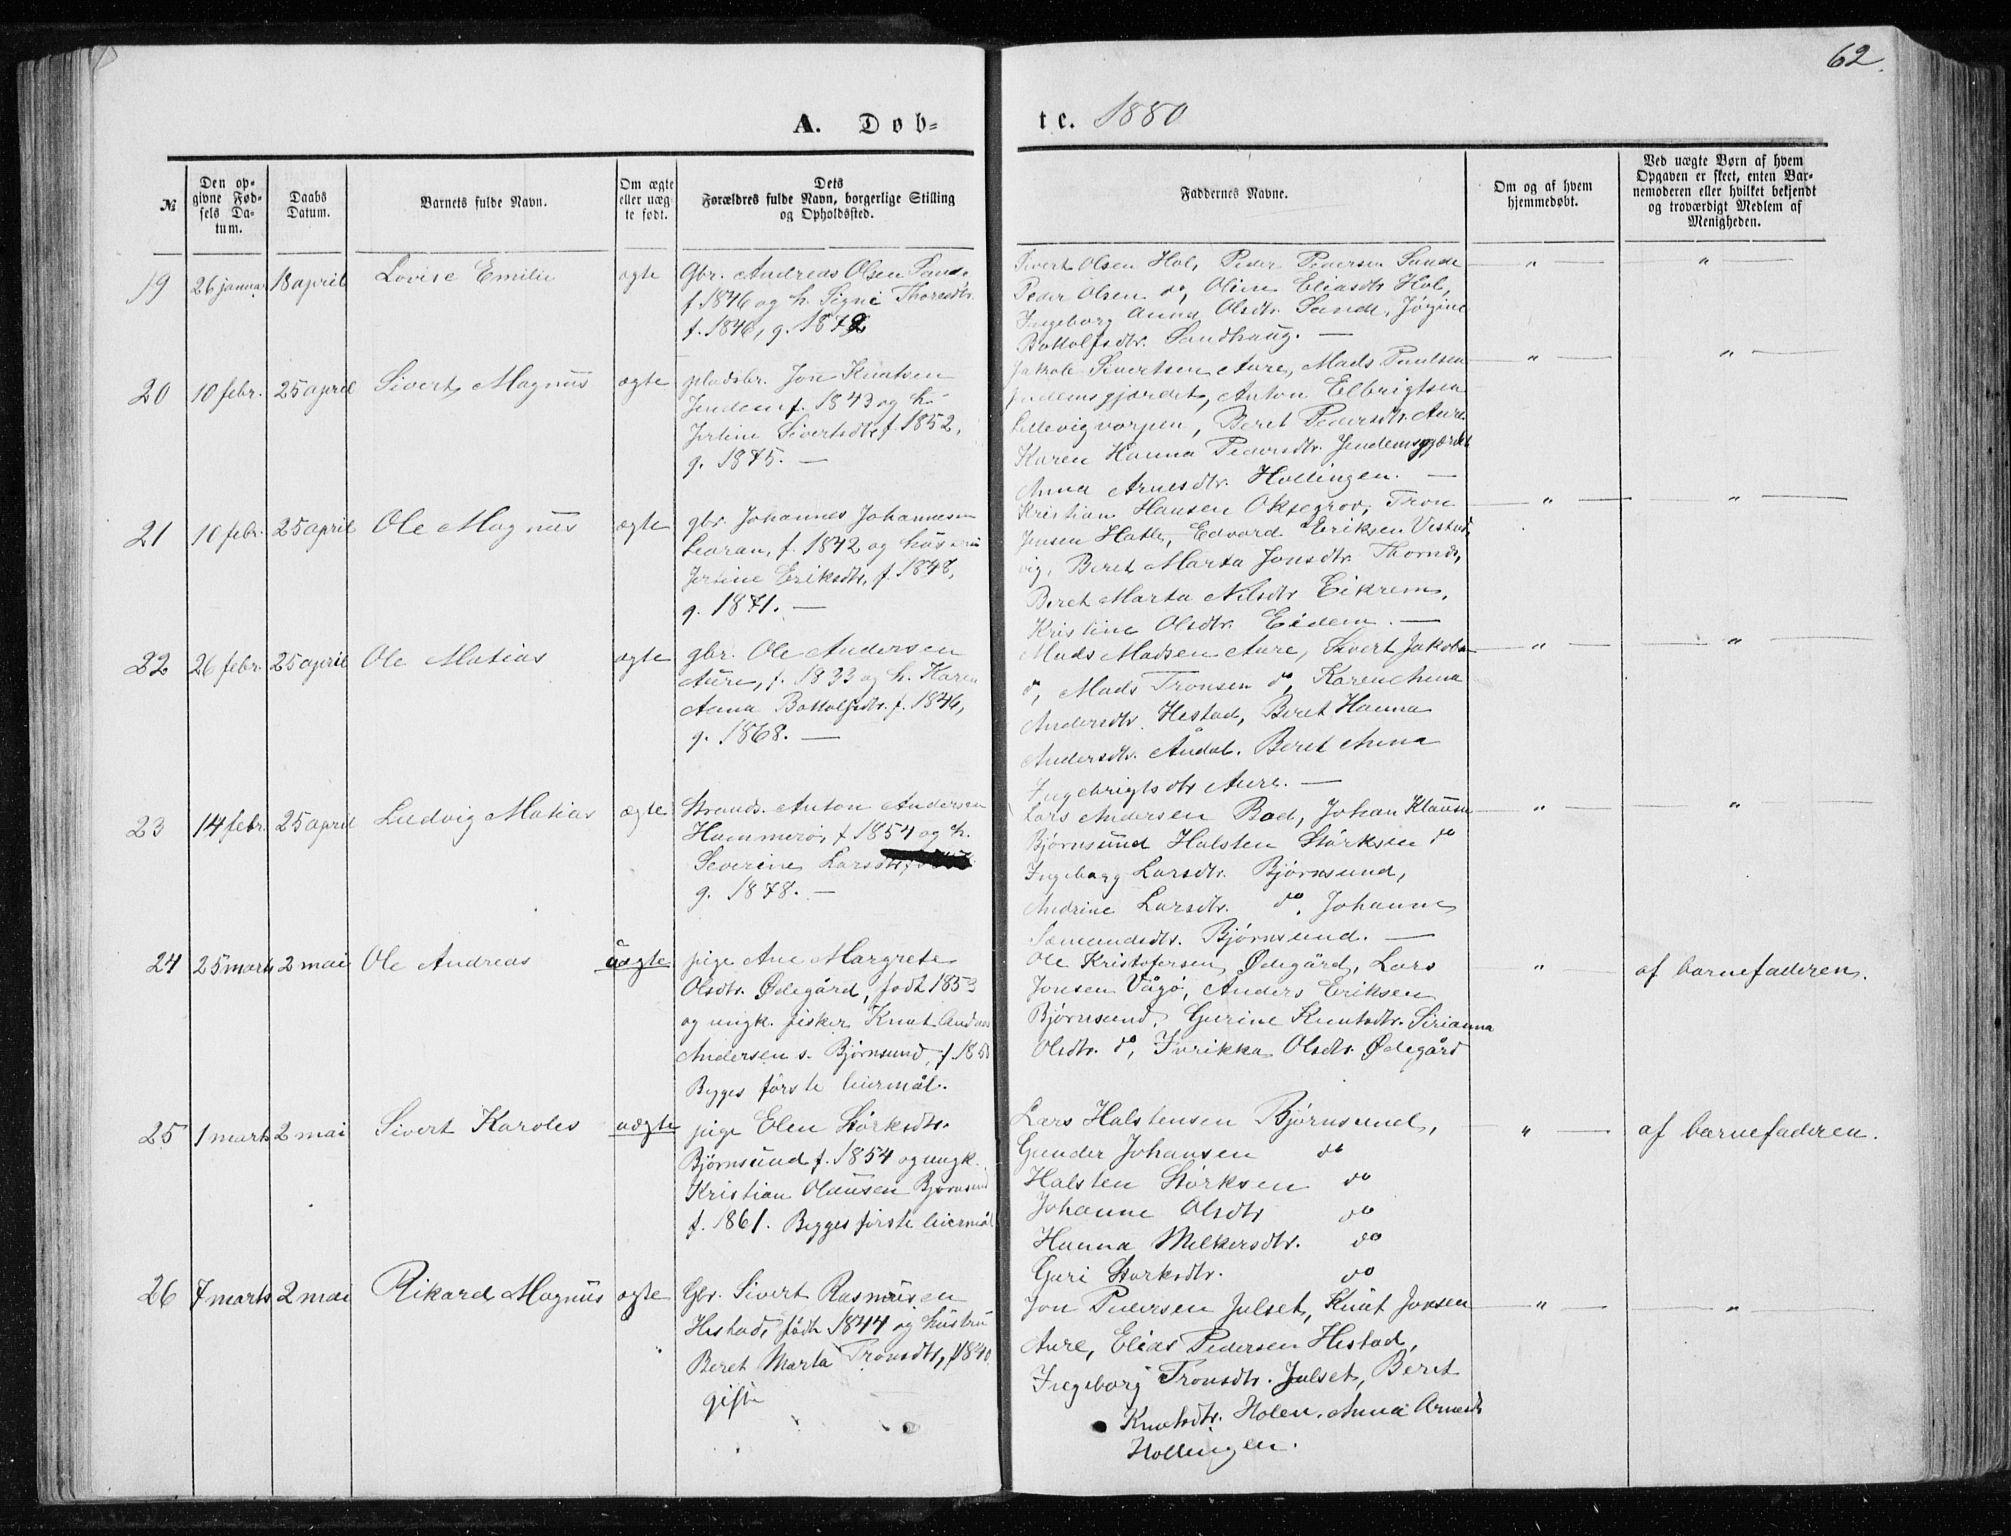 62.
A. Døb-
te. 1880
№
Den op-
givne Fød-
sels Da-
tum.
Daabs
Datum.
Barnets fulde Navn.
Om ægte
eller uæg-
te født.
Dets
Forældres fulde Navn, borgerlige Stilling
og Opholdssted.
Faddernes Navne.
Om og af hvem
hjemmedøbt.
Ved uægte Børn af hvem
Opgaven er skeet, enten Bar-
nemoderen eller hvilket bekjendt
og troværdigt Medlem af
Menigheden.
19 26 januar 18 april Lovise Emilie ægte
Gbr. Andreas Olsen Sande
f. 1846 og h. Signi Thoresdtr.
f. 1846, g. 1872
Sivert Olsen Hol, Peder Pedersen Sande
Peder Olsen do, Oline Eliasdtr Hol,
Ingeborg Anna Olsdtr. Sande, Jørgine
Bottolfsdtr. Sandhaug. —
" "
20 10 febr. 25 april Sivert Magnus ægte
pladsbr. Jon Knutsen
Jendem f. 1843 og h.
Jertine Sivertsdtr, f. 1852,
g. 1875. —
Jakob Sivertsen Aure, Mads Paulsen
Jendemsgjærdet, Anton Elbrigtsen
Lillevigvorpen, Beret Pedersdtr. Aure
Karen Hanna Pedersdtr. Jendemsgjærdet
Anna Arnesdtr. Hollingen. —
" "
21 10 febr. 25 april Ole Magnus ægte
gbr. Johannes Johannesen
Learan, f. 1842 og hustru
Jertine Eriksdtr, f. 1848,
g. 1871. —
Kristian Hansen Oksegrov, Tron
Jensen Hatle, Edvard Eriksen Vestad
vig, Beret Marta Jonsdtr. Thornes,
Beret Marta Nilsdtr Eikrem,
Kristine Olsdtr. Eidem. —
" "
22 26 febr. 25 april Ole Matias ægte
gbr. Ole Andersen
Aure, f. 1833 og h. Karen
Anna Bottolfsdtr. f. 1846,
g. 1868. —
Mads Madsen Aure, Sivert Jakobsen
do, Mads Tronsen do, Karen Anna
Andersdtr. Hestad, Beret Hanna
Andersdtr. Årdal. Beret Anna
Ingebrigtsdtr Aure. —
" "
23 14 febr. 25 april Ludvig Matias ægte
Strands. Anton Andersen
Hammerø, f 1854 og h.
Severine Larsdtr,
g. 1878. —
Lars Andersen Bod, Johan Klausen
Bjørnsund Halsten Størksen do
Ingeborg Larsdtr. Bjørnsund,
Andrine Larsdtr. do, Johanne
Sæmundsdtr. Bjørnsund. —
" "
24 25 marts 2 mai Ole Andreas uægte
pige Ane Margrete
Olsdtr. Ødegård, født 1853
og ungk. fisker Knut
Andersen s. Bjørnsund, f. 185
Begges første leiermål.
Ole Kristofersen Ødegård, Lars
Jonsen Vågø, Anders Eriksen
Bjørnsund, Gurine Knutsdtr. Sirianna
Olsdtr. do, Fredrikka Olsdtr. Ødegård
" af barnefaderen.
25 1 marts 2 mai Sivert Karoles uægte
pige Elen Størksdtr.
Bjørnsund f. 1854 og ungk.
Kristian Olausen Bjørnsund
f. 1861. Begges første leiermål
Lars Halstensen Bjørnsund,
Gunder Johansen do
Halsten Størksen do
Johanne Olsdtr do
Hanna Melkersdtr. do
Guri Størksdtr. do
" af barnefaderen.
26 7 marts 2 mai Rikard Magnus ægte
Gbr. Sivert Rasmusen
Hestad, født 1844 og hustru
Beret Marta Tronsdtr, f 1840
gift
Jon Pedersen Julset, Knut Jonsen
Aure, Elias Pedersen Hestad,
Ingeborg Tronsdtr. Julset, Beret
Knutsdtr. Holen. Anna Arnesdtr
Hollingen.
" "